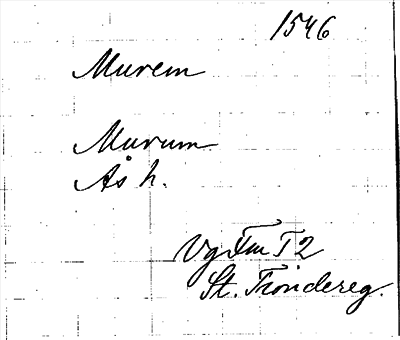 1546
Murem
Murum
Ås h.
Vg Fm T2
St. Tröndereg.